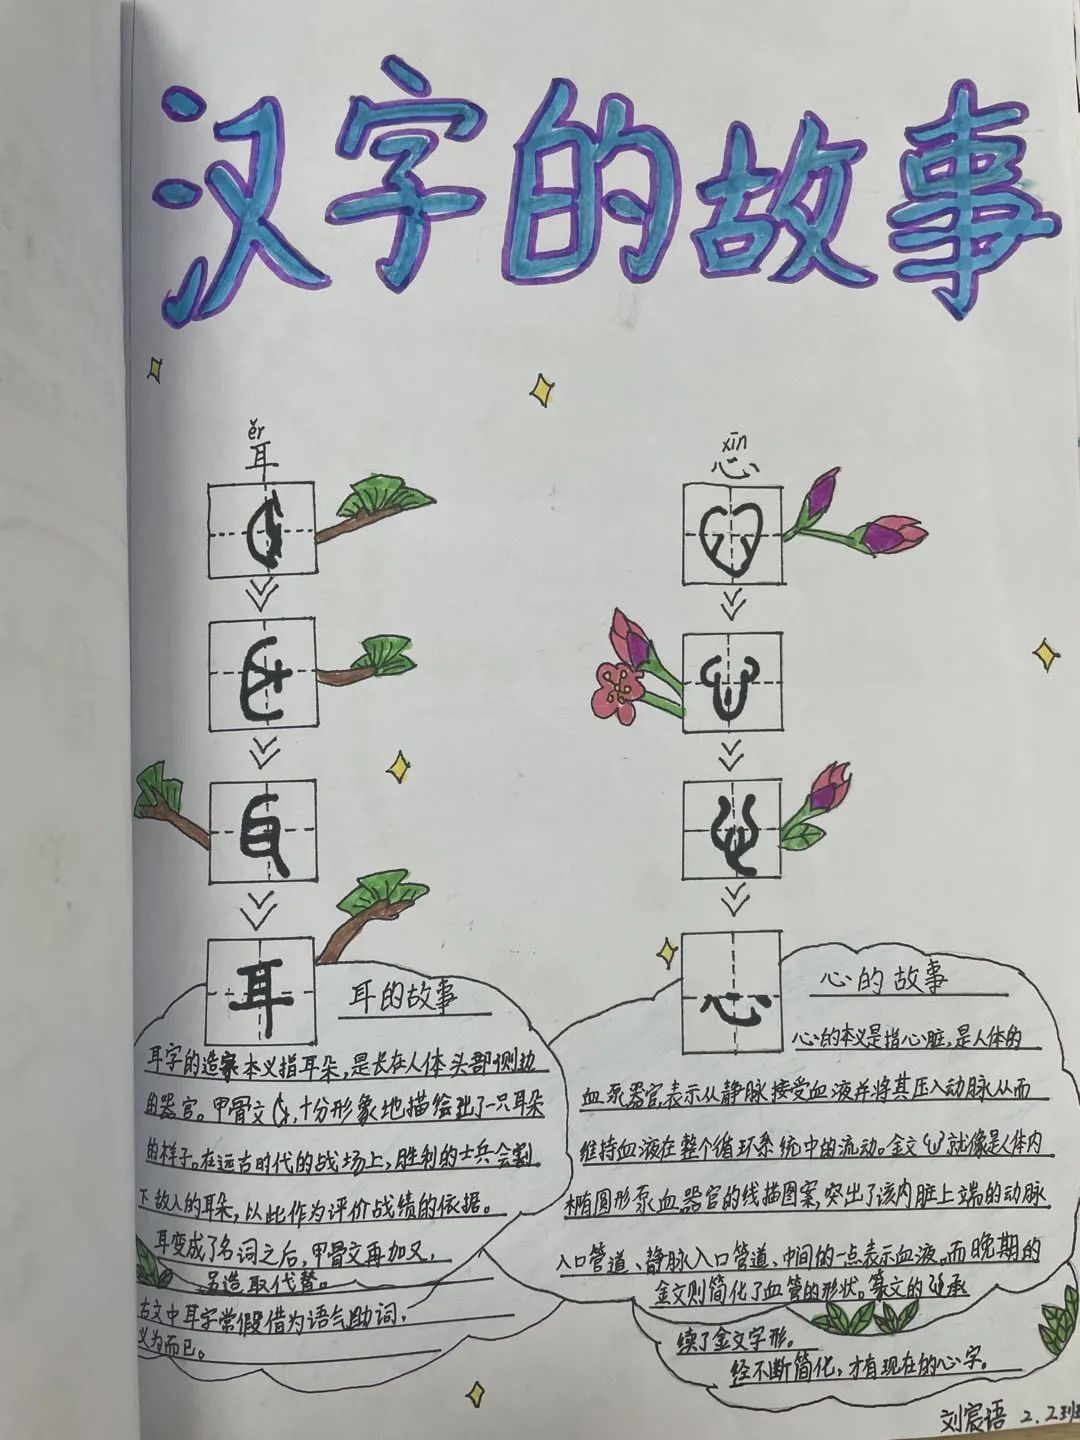 汉字的故事
ěr
耳
耳
耳的故事
耳字的造字本义指耳朵,是长在人体头部侧边
的器官。甲骨文,十分形象地描绘出了一只耳朵
的样子。在远古时代的战场上,胜利的士兵会割
下敌人的耳朵,以此作为评价战绩的依据。
耳变成了名词之后,甲骨文再加又,
另造取代替。
古文中耳字常假借为语气助词,
义为而已。
xīn
心
心
心的故事
心的本义是指心脏,是人体的
血泵器官,表示从静脉接受血液并将其压入动脉从而
维持血液在整个循环系统中的流动。金文就像是人体内
椭圆形泵血器官的线描图案,突出了该内脏上端的动脉
入口管道、静脉入口管道、中间的一点表示血液。而晚期的
金文则简化了血管的形状。篆文的承
续了金文字形。
经不断简化,才有现在的心字。
刘宸语 2.2班